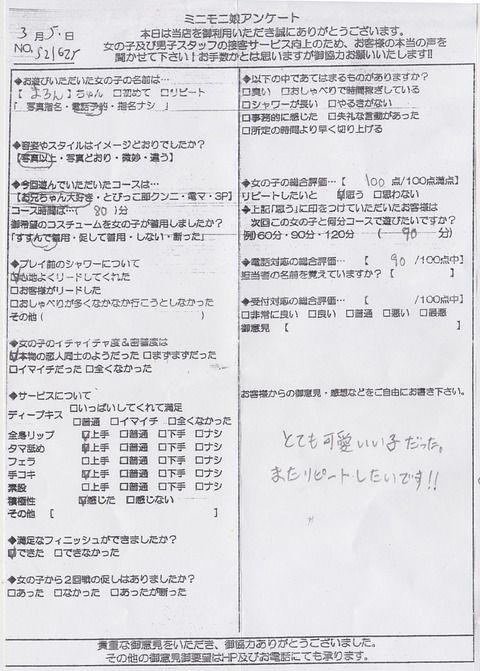 ミニモニ娘アンケート
3月5日
NO.521625
本日は当店を御利用いただき誠にありがとうございます。
女の子及び男子スタッフの接客サービス向上のため、お客様の本当の声を
聞かせて下さい!お手数かとは思いますが御協力お願いいたします!!
◆お遊びいただいた女の子の名前は…
【まろん】ちゃん □初めて □リピート
「写真指名・電話予約・指名ナシ」
◆容姿やスタイルはイメージどおりでしたか?
【写真以上・写真どおり・微妙・違う】
◆今回遊んでいただいたコースは…
【お兄ちゃん大好き・とびっこ即クンニ・電マ・3P】
コース時間は…(80)分
御希望のコスチュームを女の子が着用しましたか?
「すすんで着用・促して着用・しない・断った」
◆プレイ前のシャワーについて
□心地よくリードしてくれた
□お客様がリードした
□おしゃべりが多くなかなか行こうとしなかった
その他( )
◆女の子のイチャイチャ度&密着度は
□本物の恋人同士のようだった □まずまずだった
□イマイチだった □全くなかった
◆サービスについて
ディープキス □いっぱいしてくれて満足
□普通 □イマイチ □全くなかった
全身リップ □上手 □普通 □下手 □ナシ
タマ舐め □上手 □普通 □下手 □ナシ
フェラ □上手 □普通 □下手 □ナシ
手コキ □上手 □普通 □下手 □ナシ
素股 □上手 □普通 □下手 □ナシ
積極性 □感じた □感じない
その他【 】
◆満足なフィニッシュができましたか?
□できた □できなかった
◆女の子から2回戦の促しはありましたか?
□あった □なかった □あったが断った
◆以下の中であてはまるものがありますか?
□良い □おしゃべりで時間稼ぎしている
□シャワーが長い □やるきがない
□事務的に感じた □失礼な言動があった
□所定の時間より早く切り上げる
◆女の子の総合評価…【100点/100点満点】
リピートしたいと □思う □思わない
◆上記「思う」に印をつけていただいたお客様は
次回この女の子と何分コースで遊びたいですか?
例)60分・90分・120分 (90分)
◆電話対応の総合評価…【90/100点中】
担当者の名前を覚えていますか?【 】
◆受付対応の総合評価…【 /100点中】
□非常に良い □良い □普通 □悪い □最悪
御意見【 】
お客様からの御意見・感想などをご自由にお書き下さい。
とても可愛いい子だった。
またリピートしたいです!!
貴重な御意見をいただき、御協力ありがとうございました。
その他の御意見御要望はHP及びお電話にても承ります。